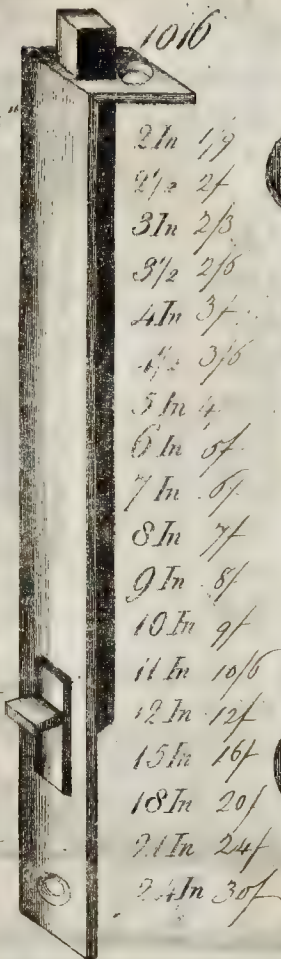 1016
2 In 1/9
2 1/2 2/
3 In 2/3
3 1/2 2/6
4 In 3/
4 1/2 3/6
5 In 4
6 In 5/
7 In 6/
8 In 7/
9 In 8/
10 In 9/
11 In 10/6
12 In 12/
15 In 16/
18 In 20/
21 In 24/
24 In 30/